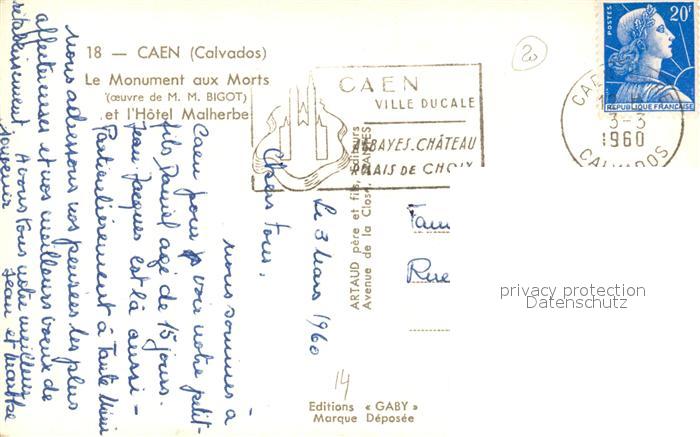 18 — CAEN (Calvados)
Le Monument aux Morts
(œuvre de M. M. BIGOT)
et l'Hôtel Malherbe
20
POSTES
20F
REPUBLIQUE FRANÇAISE
CAEN
VILLE DUCALE
ABBAYES. CHÂTEAU
RELAIS DE CHOIX
3-3
1960
CALVADOS
ARTAUD père et fils, éditeurs
Avenue de la Close, NANTES
Le 3 Mars 1960
Chers tous,
nous sommes à
Caen pour voir notre petit-
fils Daniel agé de 15 jours.
Jean Jacques est là aussi -
Particulièrement à Tante Mimi
nous adressons nos pensées les plus
affectueuses et nos meilleurs voeux de
rétablissement. A vous tous notre meilleur
souvenir
Jean et Marthe
Fam
Rue
privacy protection
Datenschutz
14
Editions « GABY »
Marque Déposée